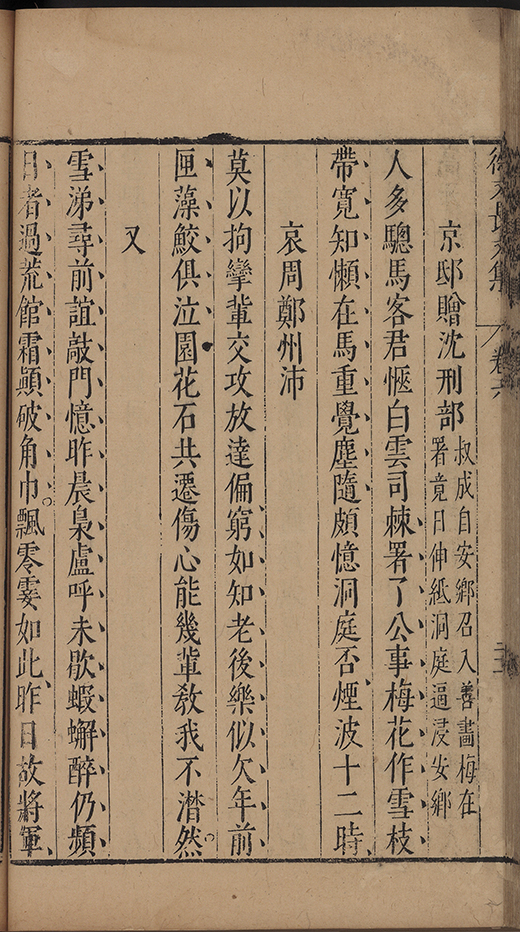 徐文長文集 卷六
京邸贈沈刑部 叔成自安鄉召入善畫梅在
署竟日伸紙洞庭逼浸安鄉
人多驄馬客君愜白雲司棘署了公事梅花作雪枝
帶寬知懶在馬重覺塵隨頗憶洞庭否煙波十二時
哀周鄭州沛
莫以拘攣輩交攻放達偏窮如知老後樂似欠年前
匣藻鮫俱泣園花石共遷傷心能幾輩教我不潸然
又
雪涕尋前誼敲門憶昨晨梟盧呼未歇蝦蠏醉仍頻
日者過荒館霜顚破角巾飄零霎如此昨日故將軍